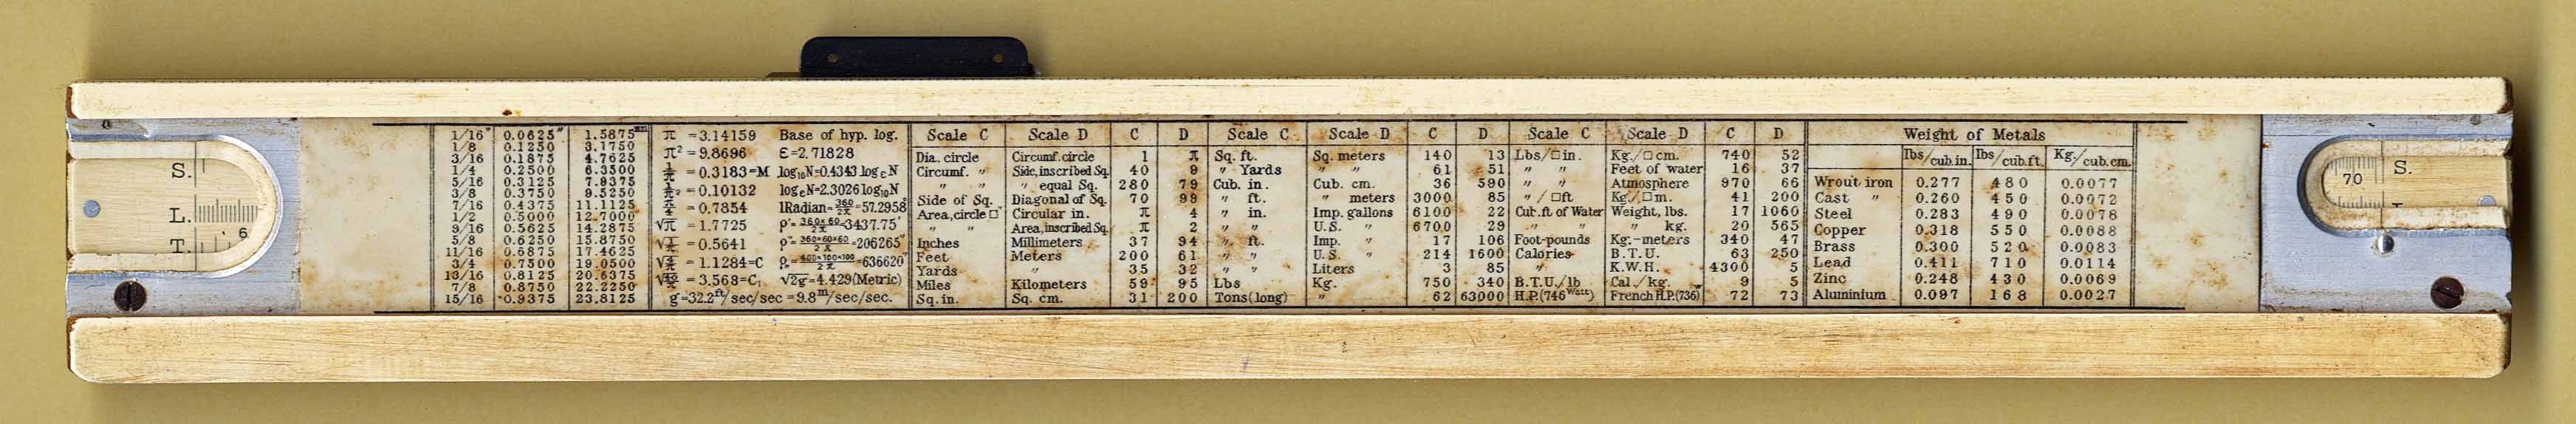 S.
L.
T.
6
1/16" 0.0625" 1.5875mm
1/8 0.1250 3.1750
3/16 0.1875 4.7625
1/4 0.2500 6.3500
5/16 0.3125 7.9375
3/8 0.3750 9.5250
7/16 0.4375 11.1125
1/2 0.5000 12.7000
9/16 0.5625 14.2875
5/8 0.6250 15.8750
11/16 0.6875 17.4625
3/4 0.7500 19.0500
13/16 0.8125 20.6375
7/8 0.8750 22.2250
15/16 0.9375 23.8125
π =3.14159 Base of hyp. log.
π² =9.8696 Ɛ=2.71828
1/π =0.3183=M log₁₀N=0.4343 logₑN
1/π² =0.10132 logₑN=2.3026 log₁₀N
π/4 =0.7854 1Radian=360/2π=57.2958
√π =1.7725 ρ'=360×60/2π=3437.75'
√1/π =0.5641 ρ"=360×60×60/2π=206265"
√4/π =1.1284=C ρ=400×100×100/2π=636620
√40/π =3.568=C₁ √2g=4.429(Metric)
g=32.2ft/sec/sec =9.8m/sec/sec.
Scale C Scale D C D
Dia. circle Circumf. circle 1 π
Circumf. " Side, inscribed Sq. 40 9
" " " equal Sq. 280 79
Side of Sq. Diagonal of Sq. 70 99
Area, circle □ Circular in. π 4
" " Area, inscribed Sq. π 2
Inches Millimeters 37 94
Feet Meters 200 61
Yards " 35 32
Miles Kilometers 59 95
Sq. in. Sq. cm. 31 200
Scale C Scale D C D
Sq. ft. Sq. meters 140 13
" Yards " " 61 51
Cub. in. Cub. cm. 36 590
" ft. " meters 3000 85
" in. Imp. gallons 6100 22
" " U.S. " 6700 29
" ft. Imp. " 17 106
" " U.S. " 214 1600
" " Liters 3 85
Lbs Kg. 750 340
Tons(long) " 62 63000
Scale C Scale D C D
Lbs/□in. Kg./□cm. 740 52
" " Feet of water 16 37
" " Atmosphere 970 66
"/□ft Kg./□m. 41 200
Cub.ft of Water Weight, lbs. 17 1060
" " " kg. 20 565
Foot-pounds Kg.-meters 340 47
Calories B.T.U. 63 250
" K.W.H. 4300 5
B.T.U./lb Cal./kg. 9 5
H.P.(746Watt) French H.P.(736) 72 73
Weight of Metals
lbs/cub.in. lbs/cub.ft. Kg./cub.cm.
Wrout iron 0.277 480 0.0077
Cast " 0.260 450 0.0072
Steel 0.283 490 0.0078
Copper 0.318 550 0.0088
Brass 0.300 520 0.0083
Lead 0.411 710 0.0114
Zinc 0.248 430 0.0069
Aluminium 0.097 168 0.0027
70
S.